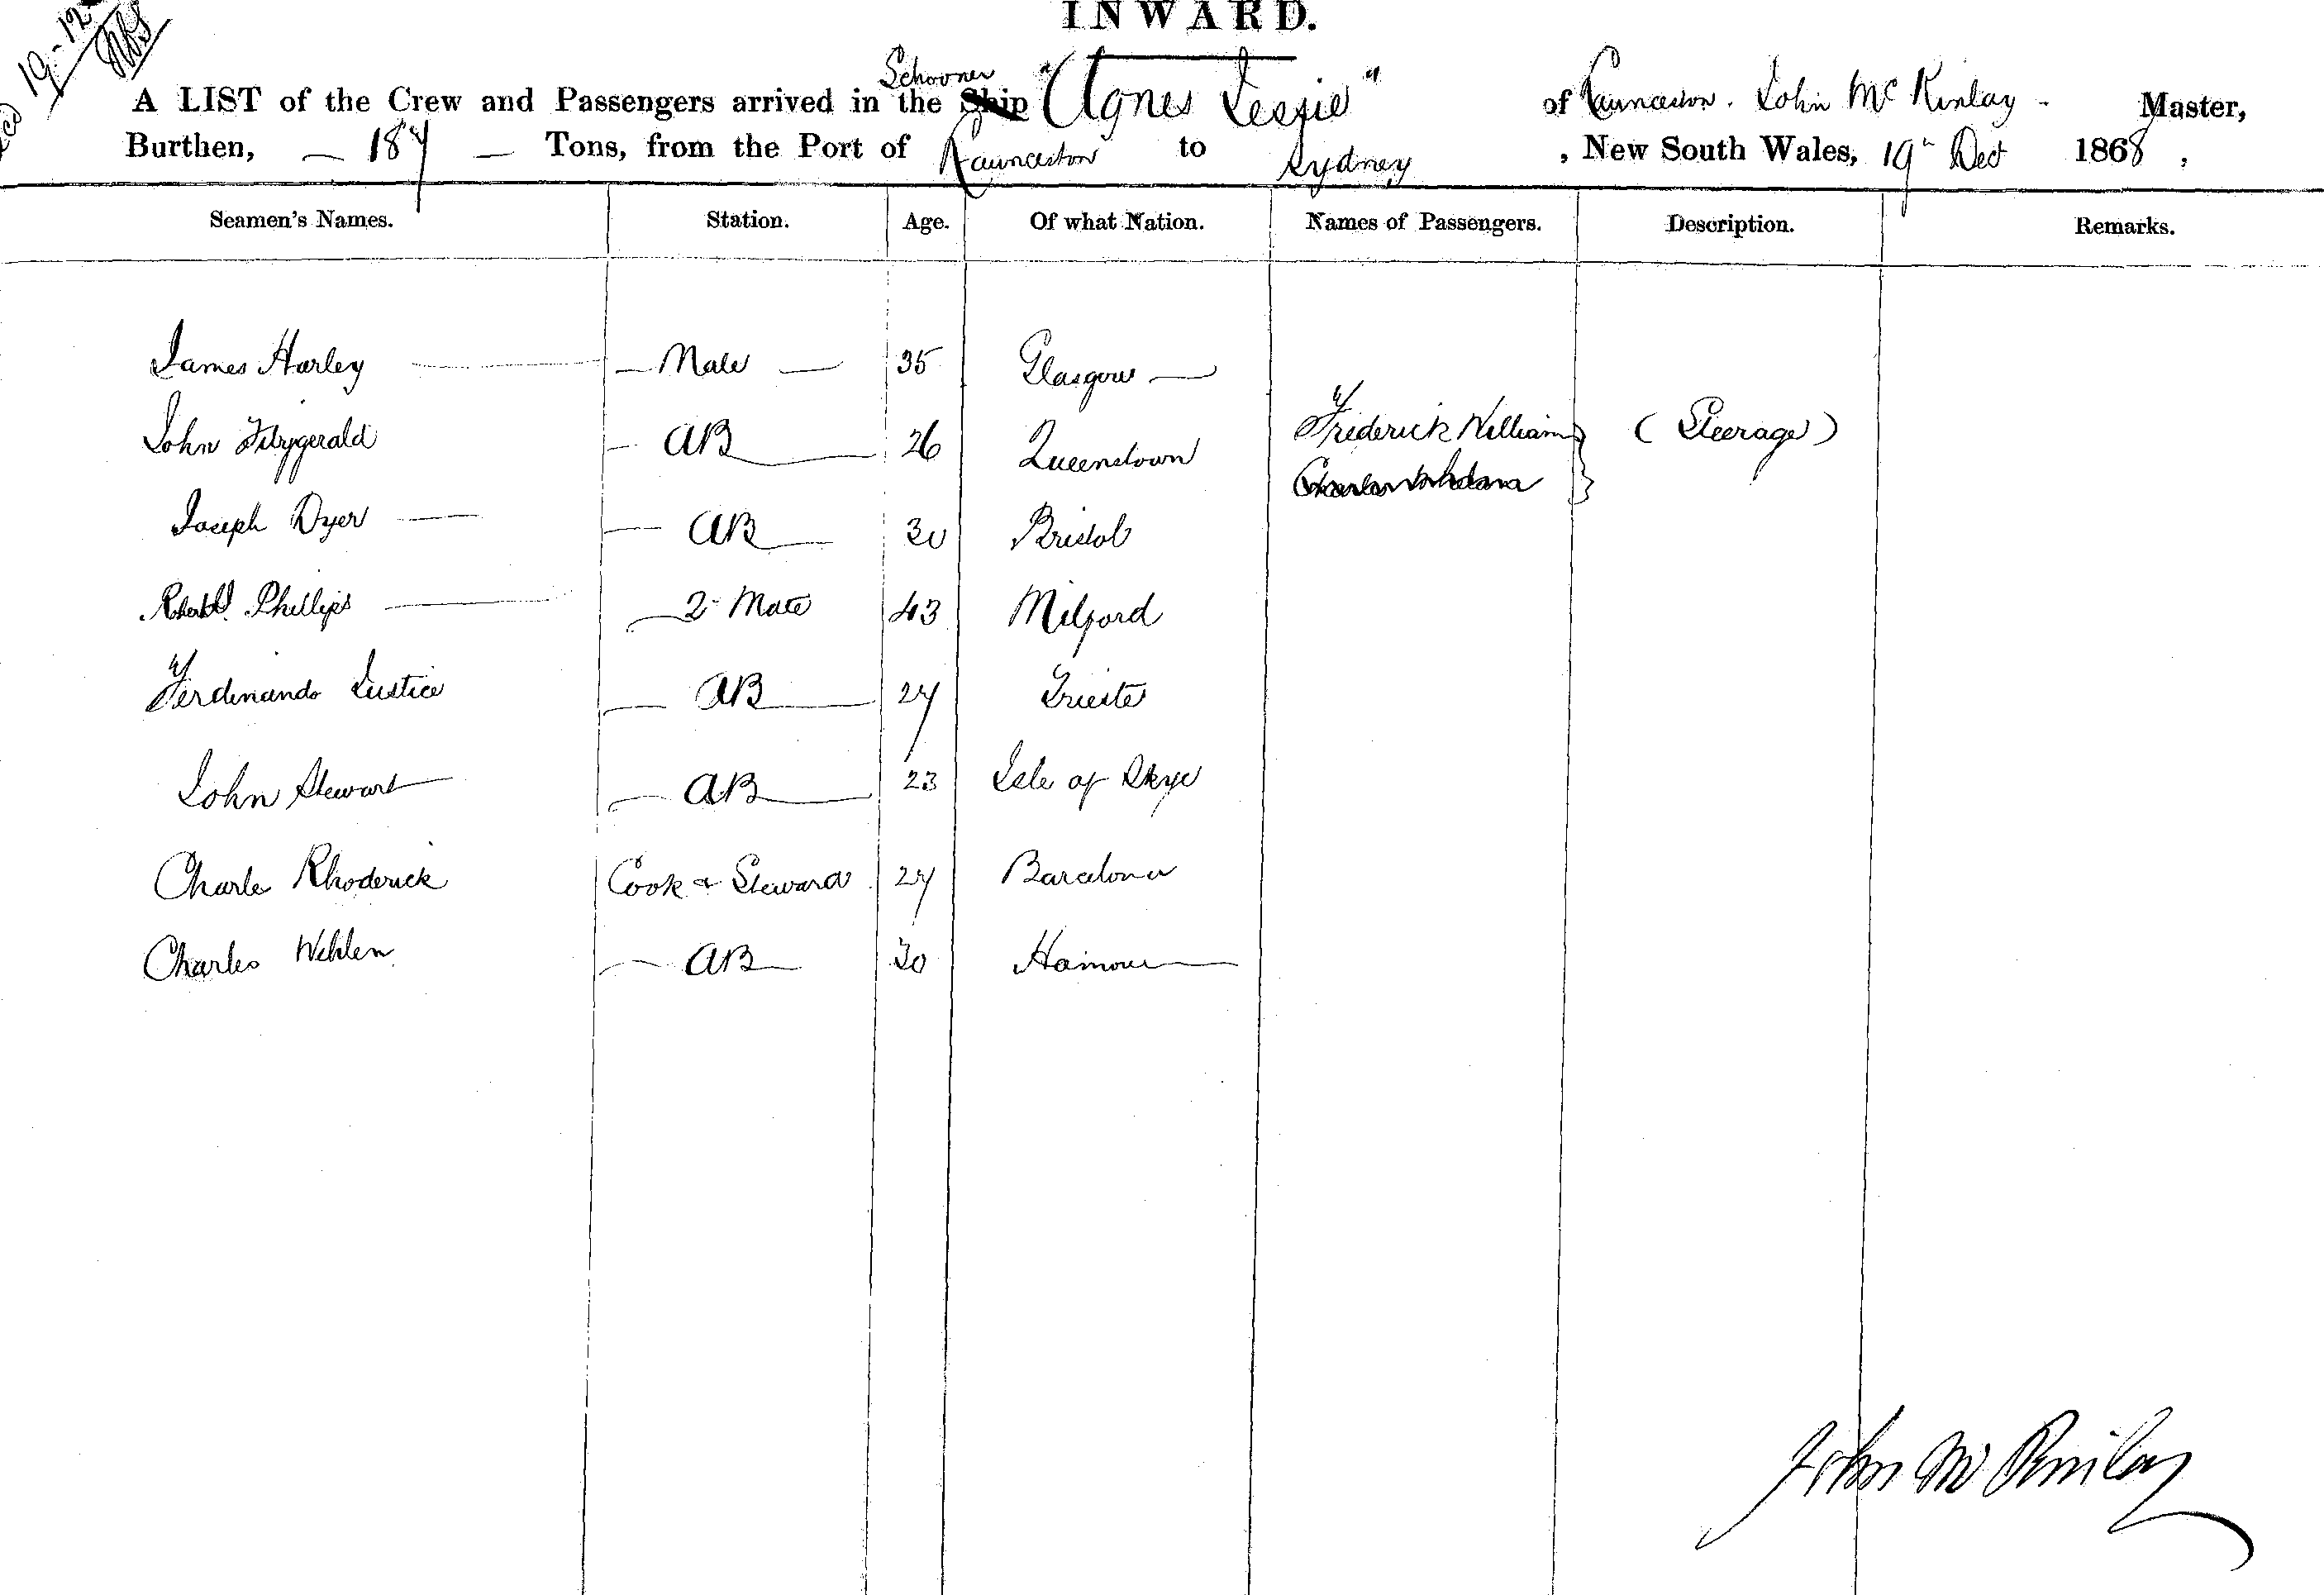 19-12-
INWARD.
A LIST of the Crew and Passengers arrived in the Schooner Ship "Agnes Jessie" of Launceston. John McKinlay - Master,
Burthen, — 187 — Tons, from the Port of Launceston to Sydney, New South Wales, 19th Dec 1868,
Seamen's Names. Station. Age. Of what Nation. Names of Passengers. Description. Remarks.
James Harley — Mate — 35 Glasgow —
John Fitzgerald — AB 26 Queenstown Frederick William (Steerage)
Joseph Dyer — AB 30 Bristol
Robert Phillips — 2nd Mate 43 Milford
Ferdinando Justice — AB 27 Trieste
John Stewart — AB 23 Isle of Skye
Charles Rhoderick Cook & Steward 27 Barcelona
Charles Wehlen — AB 30 Hainover
John McKinlay